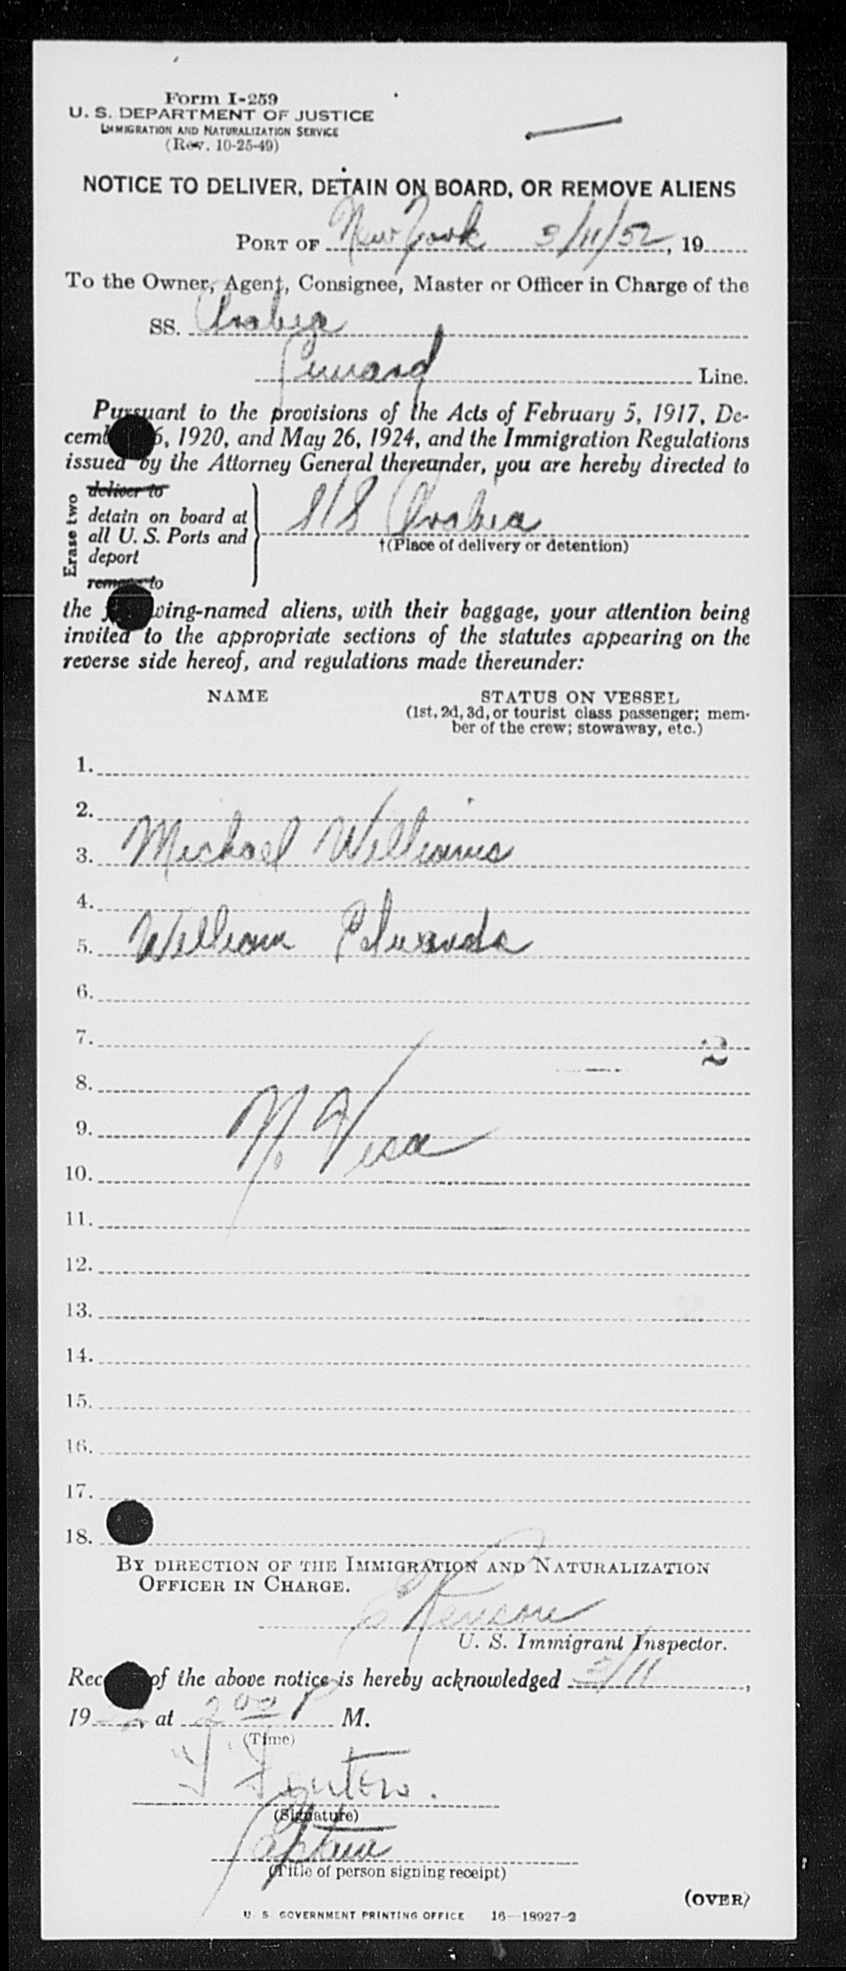 Form I-259
U. S. DEPARTMENT OF JUSTICE
IMMIGRATION AND NATURALIZATION SERVICE
(Rev. 10-25-49)
NOTICE TO DELIVER, DETAIN ON BOARD, OR REMOVE ALIENS
PORT OF New York 3/11/52, 19
To the Owner, Agent, Consignee, Master or Officer in Charge of the
SS. Arabia
Cunard Line.
Pursuant to the provisions of the Acts of February 5, 1917, De-
cem 6, 1920, and May 26, 1924, and the Immigration Regulations
issued by the Attorney General thereunder, you are hereby directed to
Erase two
deliver to
detain on board at
all U. S. Ports and
deport
remove to
S/S Arabia
†(Place of delivery or detention)
the wing-named aliens, with their baggage, your attention being
invited to the appropriate sections of the statutes appearing on the
reverse side hereof, and regulations made thereunder:
NAME STATUS ON VESSEL
(1st, 2d, 3d, or tourist class passenger; mem-
ber of the crew; stowaway, etc.)
1.
2.
3. Michael Williams
4.
5. William Edwards
6.
7. 2
8.
9. N. Visa
10.
11.
12.
13.
14.
15.
16.
17.
18.
BY DIRECTION OF THE IMMIGRATION AND NATURALIZATION
OFFICER IN CHARGE.
U. S. Immigrant Inspector.
Rec of the above notice is hereby acknowledged 3/11,
19 at 2 00 P M.
(Time)
(Signature)
Captain
(Title of person signing receipt)
(OVER)
U. S. GOVERNMENT PRINTING OFFICE 16—18927-2